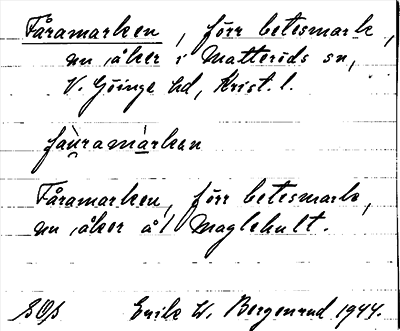 Fåramarken, förr betesmark,
nu åker i Matteröds sn,
V. Göinge hd, Krist. l.
fàuramàrken
Fåramarken, förr betesmark,
nu åker å Maglehult.
Erik W. Bergenrud 1944.